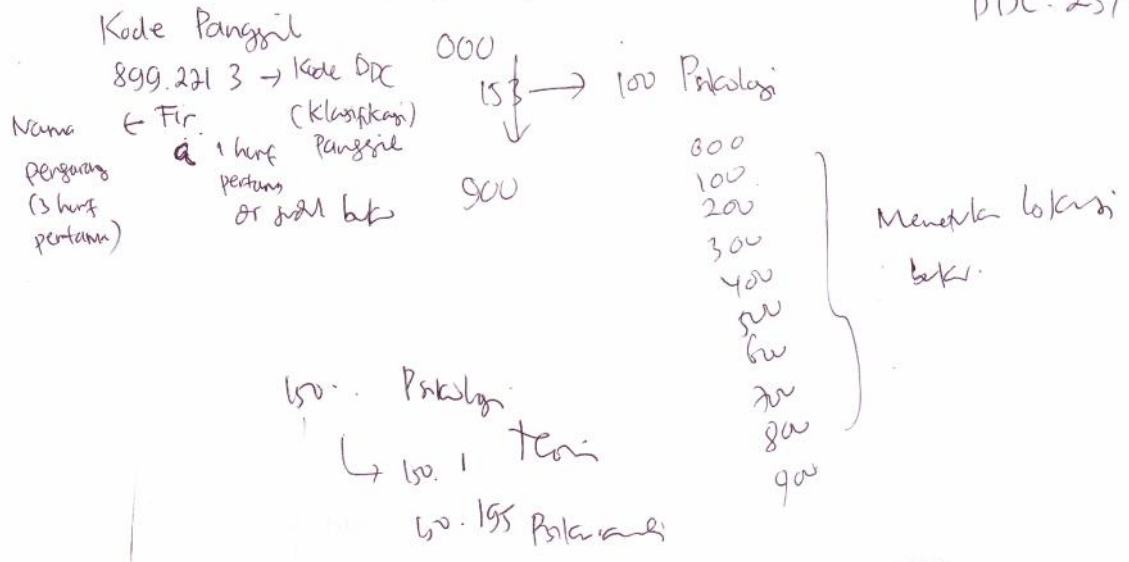 DDC. 23/
Kode Panggil
899.221 3 → Kode DDC
(Klasifikasi)
Panggil
Nama ← Fir.
pengarang
(3 huruf
pertama)
a 1 huruf
pertama
or judul buku
000
153 → 100 Psikologi
900
000
100
200
300
400
500
600
700
800
900
lokasi
buku.
150. Psikologi
↳ 150. 1 Teori
150. 195 Psikoanalisi